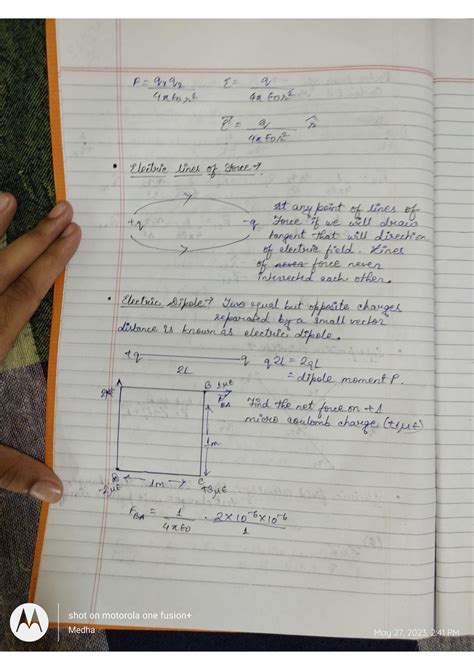 F = q1 q2 / 4πε0r²   E = q / 4πε0r²
E⃗ = q / 4πε0r² r̂
• Electric lines of Force →
+q -q
At any point of lines of
Force if we will drawn
tangent that will direction
of electric field. Lines
of never force never
intersected each other.
• Electric Dipole → Two equal but opposite charges
separated by a small vector
distance is known as electric dipole.
+q -q q2L = 2qL
2L = dipole moment P.
B 1μC
Find the net force on +1
micro coulomb charge (+1μC)
1m
D ← 1m → C
-2μC +3μC
F_BA = 1 / 4πε0 · 2×10⁻⁶×10⁻⁶ / 1
shot on motorola one fusion+
Medha
May 27, 2023, 2:41 PM